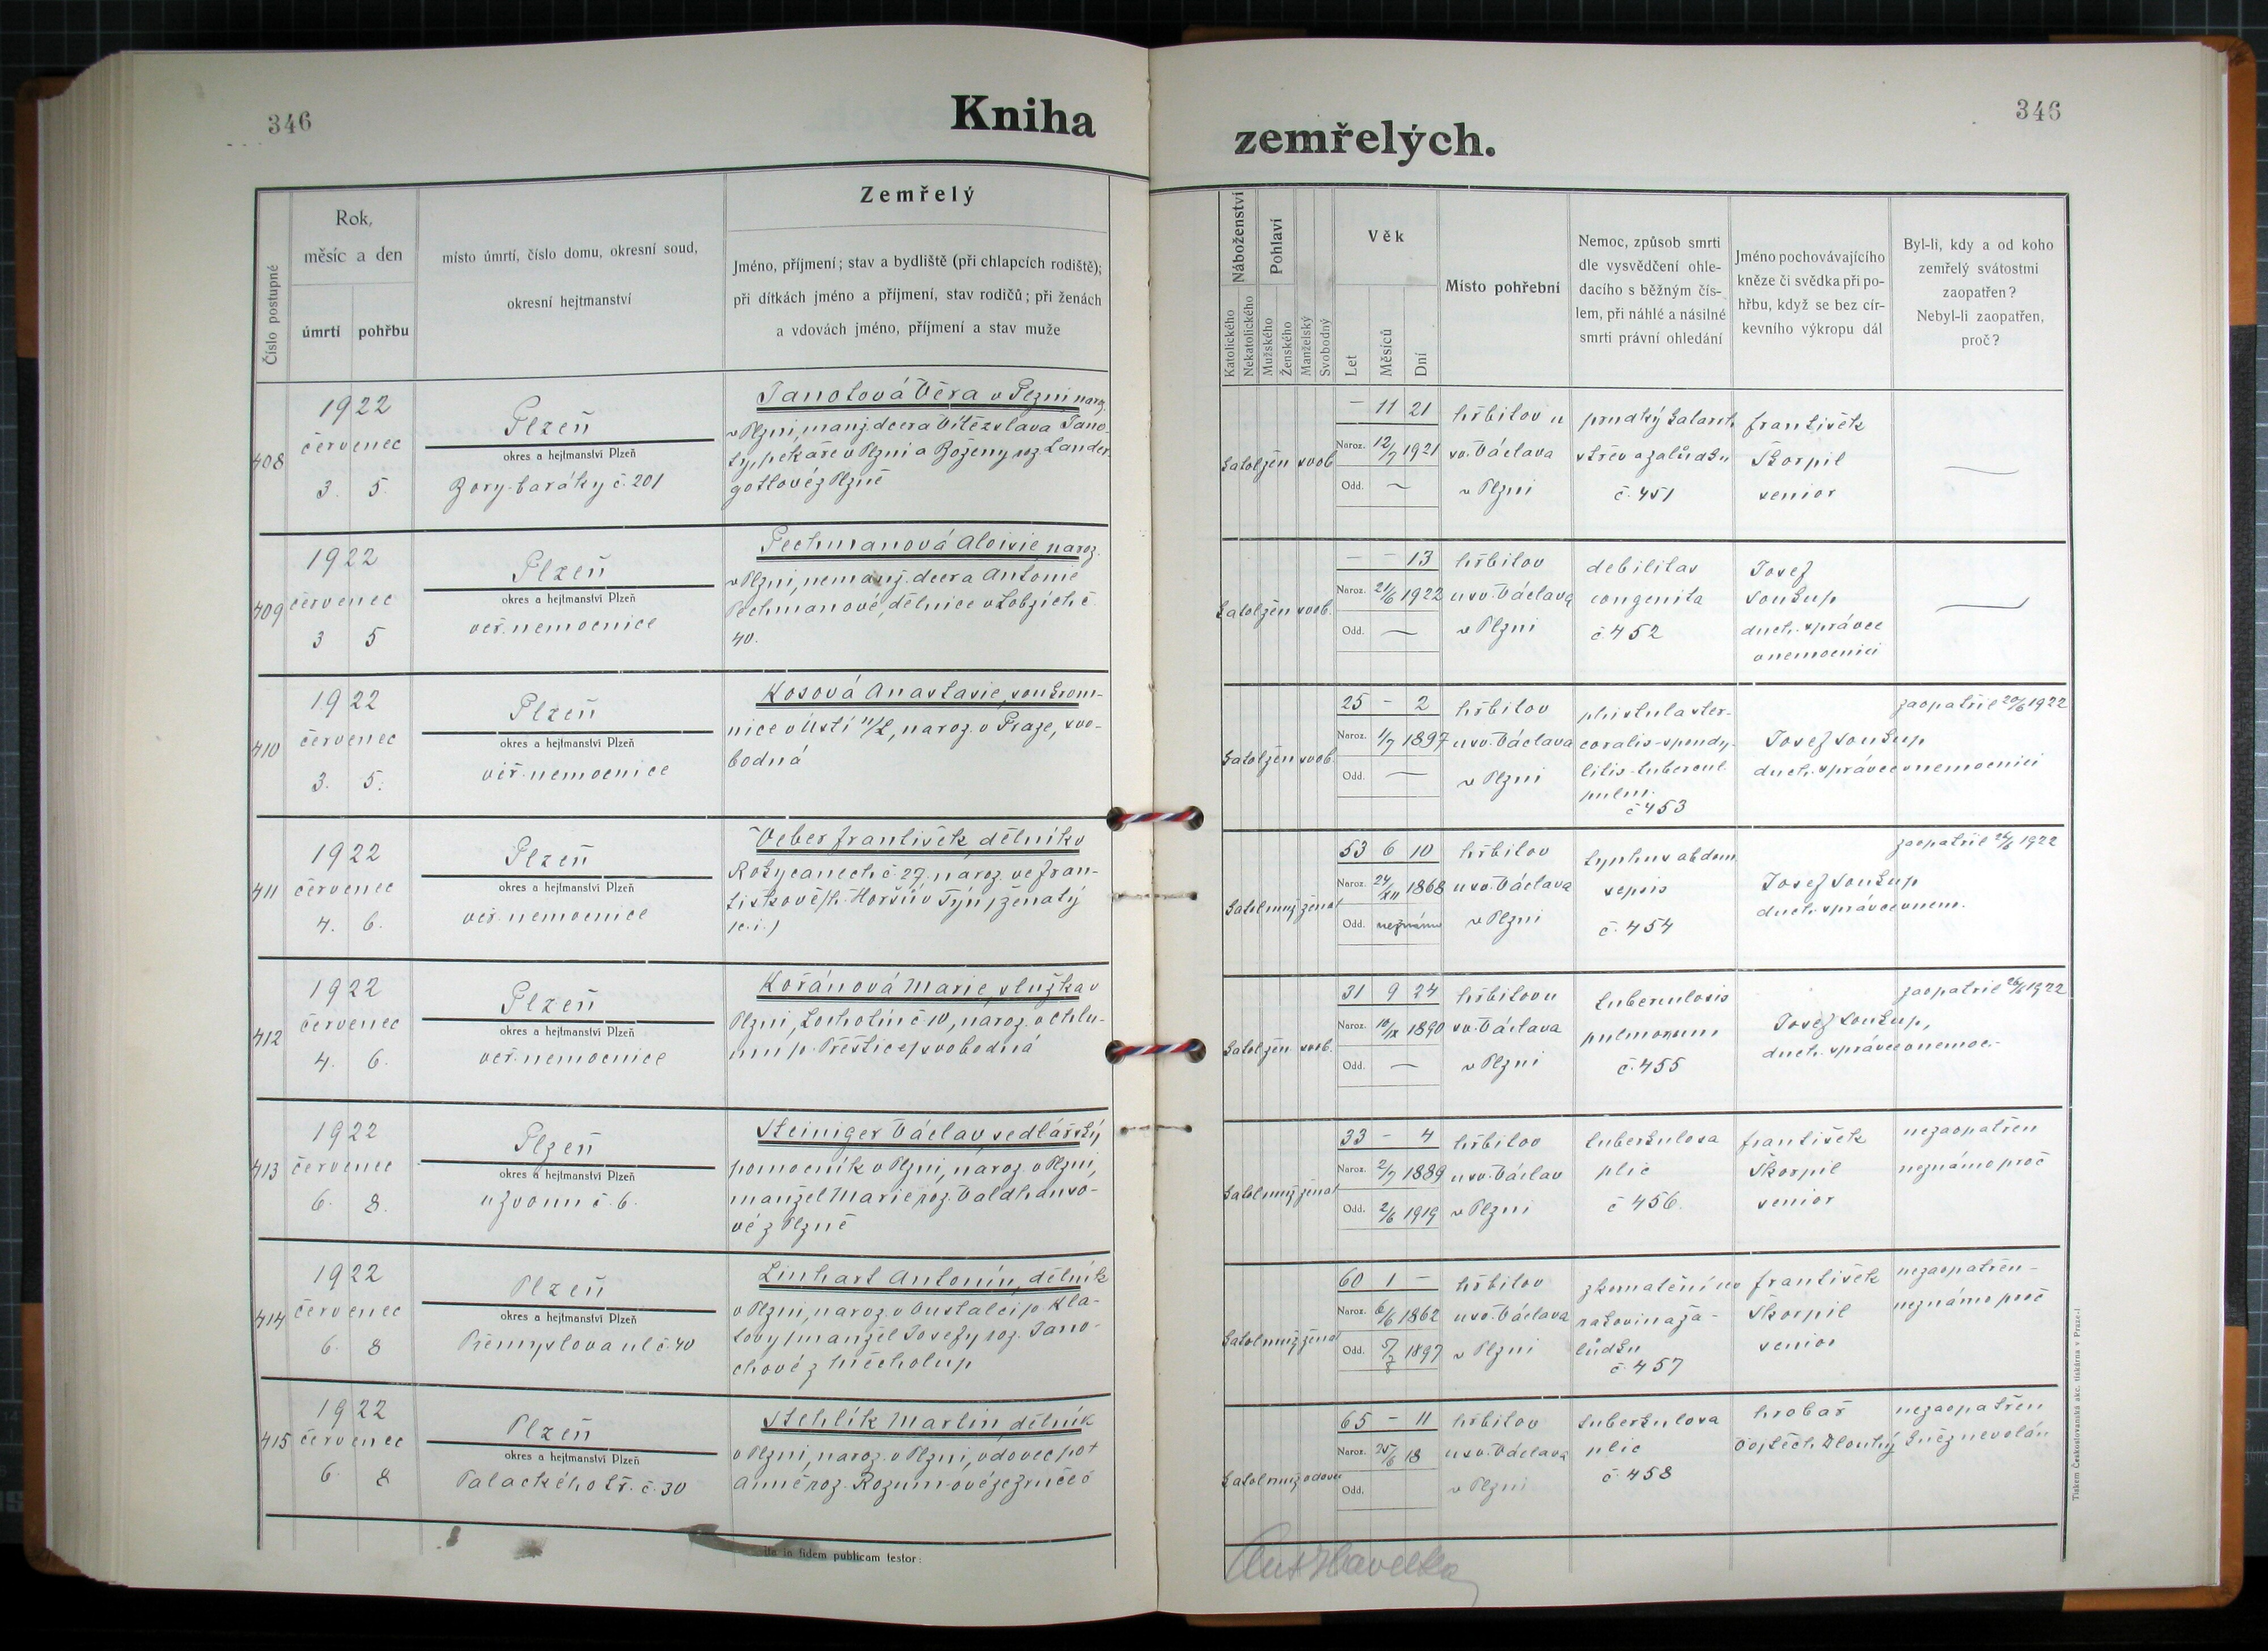 346
Kniha
zemřelých.
346
Číslo postupné
Rok,
měsíc a den
úmrtí
pohřbu
místo úmrtí, číslo domu, okresní soud,
okresní hejtmanství
Zemřelý
Jméno, příjmení; stav a bydliště (při chlapcích rodiště);
při dítkách jméno a příjmení, stav rodičů; při ženách
a vdovách jméno, příjmení a stav muže
Náboženství
Katolického
Nekatolického
Pohlaví
Mužského
Ženského
Manželský
Svobodný
Věk
Let
Měsíců
Dní
Místo pohřební
Nemoc, způsob smrti
dle vysvědčení ohle-
dacího s běžným čís-
lem, při náhlé a násilné
smrti právní ohledání
Jméno pochovávajícího
kněze či svědka při po-
hřbu, když se bez cír-
kevního výkropu dál
Byl-li, kdy a od koho
zemřelý svátostmi
zaopatřen?
Nebyl-li zaopatřen,
proč?
408
1922
červenec
3. 5.
Plzeň
okres a hejtmanství Plzeň
Bory-baráky č. 201
Janotová Věra v Plzni naroz.
v Plzni, manž. dcera Vítězslava Jano-
ty, pekaře v Plzni a Boženy roz. Lander-
gottové z Plzně
katol žen svob
– 11 21
Naroz. 12/7 1921
Odd. –
hřbitov u
sv. Václava
v Plzni
prudký katarrh
střev a žalůdku
č. 451
František
Škorpil
senior
409
1922
červenec
3 5
Plzeň
okres a hejtmanství Plzeň
veř. nemocnice
Pechmanová Aloisie naroz.
v Plzni, nemanž. dcera Antonie
Pechmanové, dělnice v Lobzích č.
40.
katol žen svob.
– – 13
Naroz. 21/6 1922
Odd. –
hřbitov
u sv. Václava
v Plzni
debilitas
congenita
č. 452
Josef
Soukup
duch. správce
v nemocnici
410
1922
červenec
3. 5.
Plzeň
okres a hejtmanství Plzeň
veř. nemocnice
Kosová Anastasie, soukrom-
nice v Ústí n/L, naroz. v Praze, svo-
bodná
katol žen svob.
25 – 2
Naroz. 1/7 1897
Odd. –
hřbitov
u sv. Václava
v Plzni
phistula ster-
coralis-spondy-
litis-tubercul.
pulm.
č. 453
zaopatřil 20/6 1922
Josef Soukup
duch. správce v nemocnici
411
1922
červenec
4. 6.
Plzeň
okres a hejtmanství Plzeň
veř. nemocnice
Veber František, dělník v
Rokycanech č. 27, naroz. ve Fran-
tiškově /h. Horšův Týn/, ženatý
/c. i./
katol muž ženat
53 6 10
Naroz. 24/XII 1868
Odd. neznámo
hřbitov
u sv. Václava
v Plzni
typhus abdom.
sepsis
č. 454
zaopatřil 1922
Josef Soukup
duch. správce v nem.
412
1922
červenec
4. 6.
Plzeň
okres a hejtmanství Plzeň
veř. nemocnice
Kořánová Marie, služka v
Plzni, Lochotín č 10, naroz. v Chlu-
mu /p. Přeštice/ svobodná
katol žen svob.
31 9 24
Naroz. 10/IX 1890
Odd. –
hřbitov u
sv. Václava
v Plzni
tuberculosis
pulmonum
č. 455
zaopatřil 1922
Josef Soukup,
duch. správce v nemoc.
413
1922
červenec
6. 8.
Plzeň
okres a hejtmanství Plzeň
u zvonu č. 6.
Steiniger Václav, sedlářský
pomocník v Plzni, naroz. v Plzni,
manžel Marie roz. Valdhauso-
vé z Plzně
katol muž ženat
33 – 4
Naroz. 2/7 1889
Odd. 2/6 1919
hřbitov
u sv. Václav
v Plzni
tuberkulosa
plic
č 456.
František
Škorpil
senior
nezaopatřen
neznámo proč
414
1922
červenec
6. 8
Plzeň
okres a hejtmanství Plzeň
Přemyslova ul č. 40
Linhart Antonín, dělník
v Plzni, naroz. v /p. Kla-
tovy/ manžel Josefy roz. Jano-
chové z Měcholup
katol muž ženat
60 1 –
Naroz. 6/6 1862
Odd. 1897
hřbitov
u sv. Václava
v Plzni
zhrnatění
rakovina ža-
lůdku
č. 457
František
Škorpil
senior
nezaopatřen-
neznámo proč
415
1922
červenec
6. 8
Plzeň
okres a hejtmanství Plzeň
Palackého tř. č. 30
Stehlík Martin, dělník
v Plzni, naroz. v Plzni, vdovec po †
Anně roz. Rozum-ové
katol muž vdovec
65 – 11
Naroz. 25/6 18
Odd.
hřbitov
u sv. Václava
v Plzni
tuberkulosa
plic
č. 458
hrobař
Vojtěch Dlouhý
nezaopatřen
kněz nevolán
Ita in fidem publicam testor:
Ant Havelka
Tiskem Československá akc. tiskárna v Praze-I